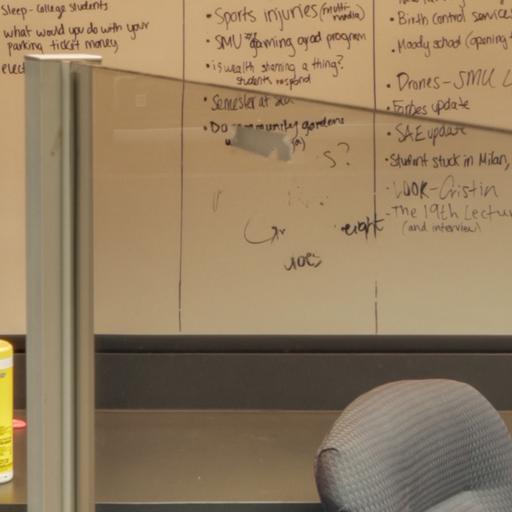 Sleep - College students
what would you do with your
parking ticket money
elect
• Sports injuries (multi
media)
• SMU gaming grad program
• is wealth shaming a thing?
students respond
• Semester at
• Do community gardens
S?
eight
• Birth Control services
• Moody school (opening
• Drones - SMU
• Forbes update
• SAE update
• Student stuck in Milan,
• LOOK - Cristin
• The 19th Lectur
(and interview)